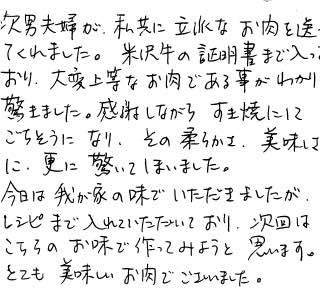 次男夫婦が、私共に立派なお肉を送っ
てくれました。米沢牛の証明書まで入って
おり、大変上等なお肉である事がわかり
驚きました。感謝しながらすき焼にして
ごちそうになり、その柔らかさ、美味しさ
に、更に驚いてしまいました。
今日は我が家の味でいただきましたが、
レシピまで入れていただいており、次回は
こちらのお味で作ってみようと思います。
とても美味しいお肉でございました。